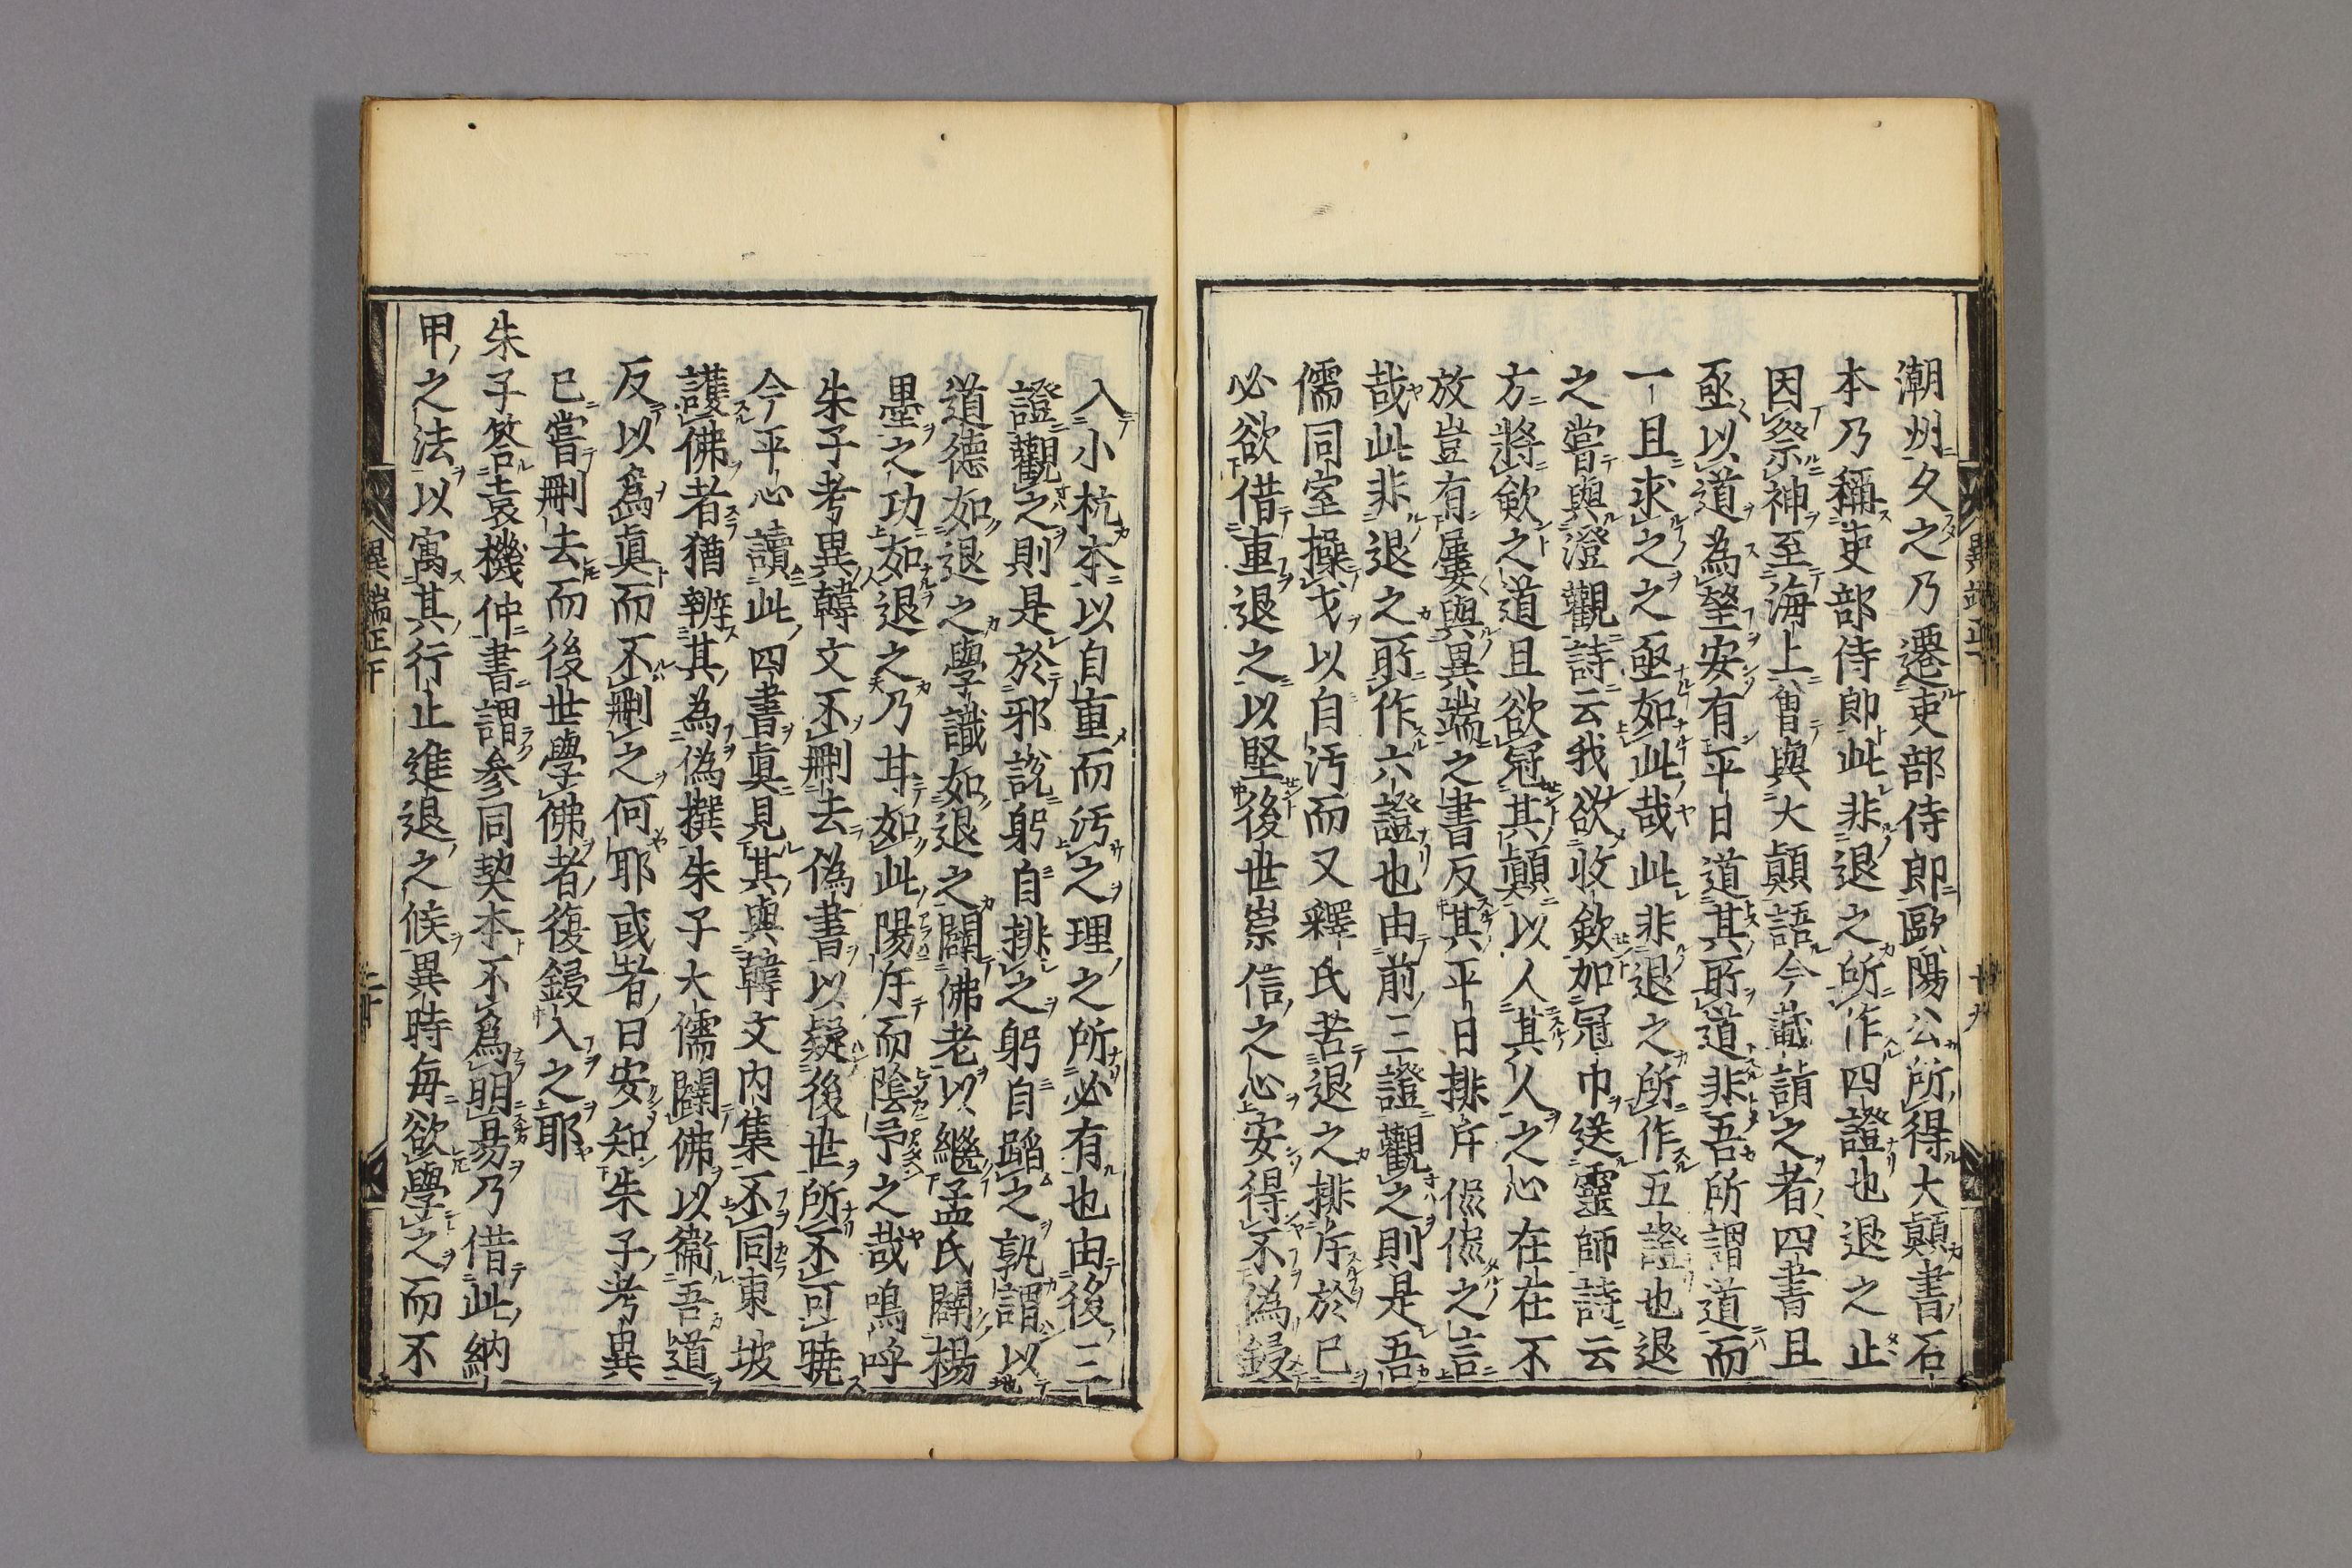 潮州久之乃遷吏部侍郎歐陽公所得大顛書石
本乃稱吏部侍郎此非退之所作四證也退之止
因祭神至海上曾與大顛語今載請之者四書且
亟以道為望安有平日道其所道非吾所謂道而
一且求之之亟如此哉此非退之所作五證也退
之嘗與澄觀詩云我欲收歛加冠巾送靈師詩云
方將歛之道且欲冠其顛以人其人之心在在不
放豈有屢與異端之書反其平日排斥偟偟之言
哉此非退之所作六證也由前三證觀之則是吾
儒同室操戈以自汚而又釋氏苦退之排斥於已
必欲借重退之以堅後世崇信之心安得不偽鋟
入小杭本以自重而汚之理之所必有也由後三
證觀之則是於邪說躬自排之躬自蹈之孰謂以
道德如退之學識如退之闢佛老以繼孟氏闢楊
墨之功如退之乃甘如此陽斥而陰予之哉嗚呼
朱子考異韓文不刪去偽書以疑後世所不可曉
今平心讀此四書眞見其與韓文內集不同東坡
護佛者猶辨其為偽撰朱子大儒闢佛以衞吾道
反以為眞而不刪之何耶或者曰安知朱子考異
已嘗刪去而後世學佛者復鋟入之耶
朱子答袁機仲書謂参同契本不為明易乃借此納
甲之法以寓其行止進退之候異時每欲學之而不
異端正下
二十
異端正下
十九